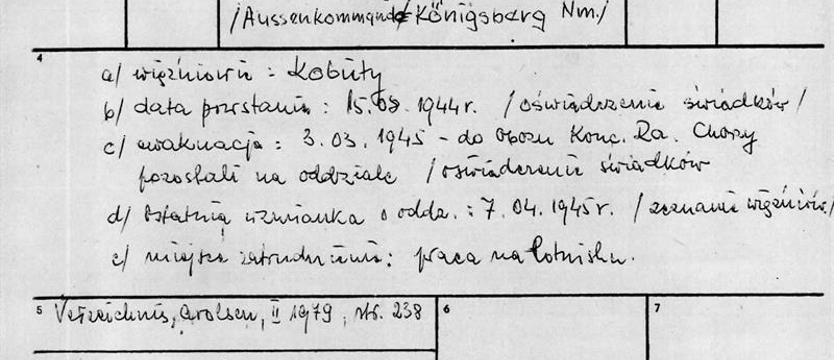 /Aussenkommando Königsberg Nm./
4
a/ więźniowie : Kobiety
b/ data powstania : 15.09.1944r. /oświadczenie świadków/
c/ ewakuacja : 3.03.1945 - do obozu Konc. Ra. Chorzy
pozostali na oddziale /oświadczenie świadków
d/ ostatnia wzmianka o oddz. : 7.04.1945r. /zeznanie więźniów/
e/ miejsce zatrudnienia: praca na lotnisku.
5 Verzeichnis, Arolsen, II 1979, str. 238
6
7